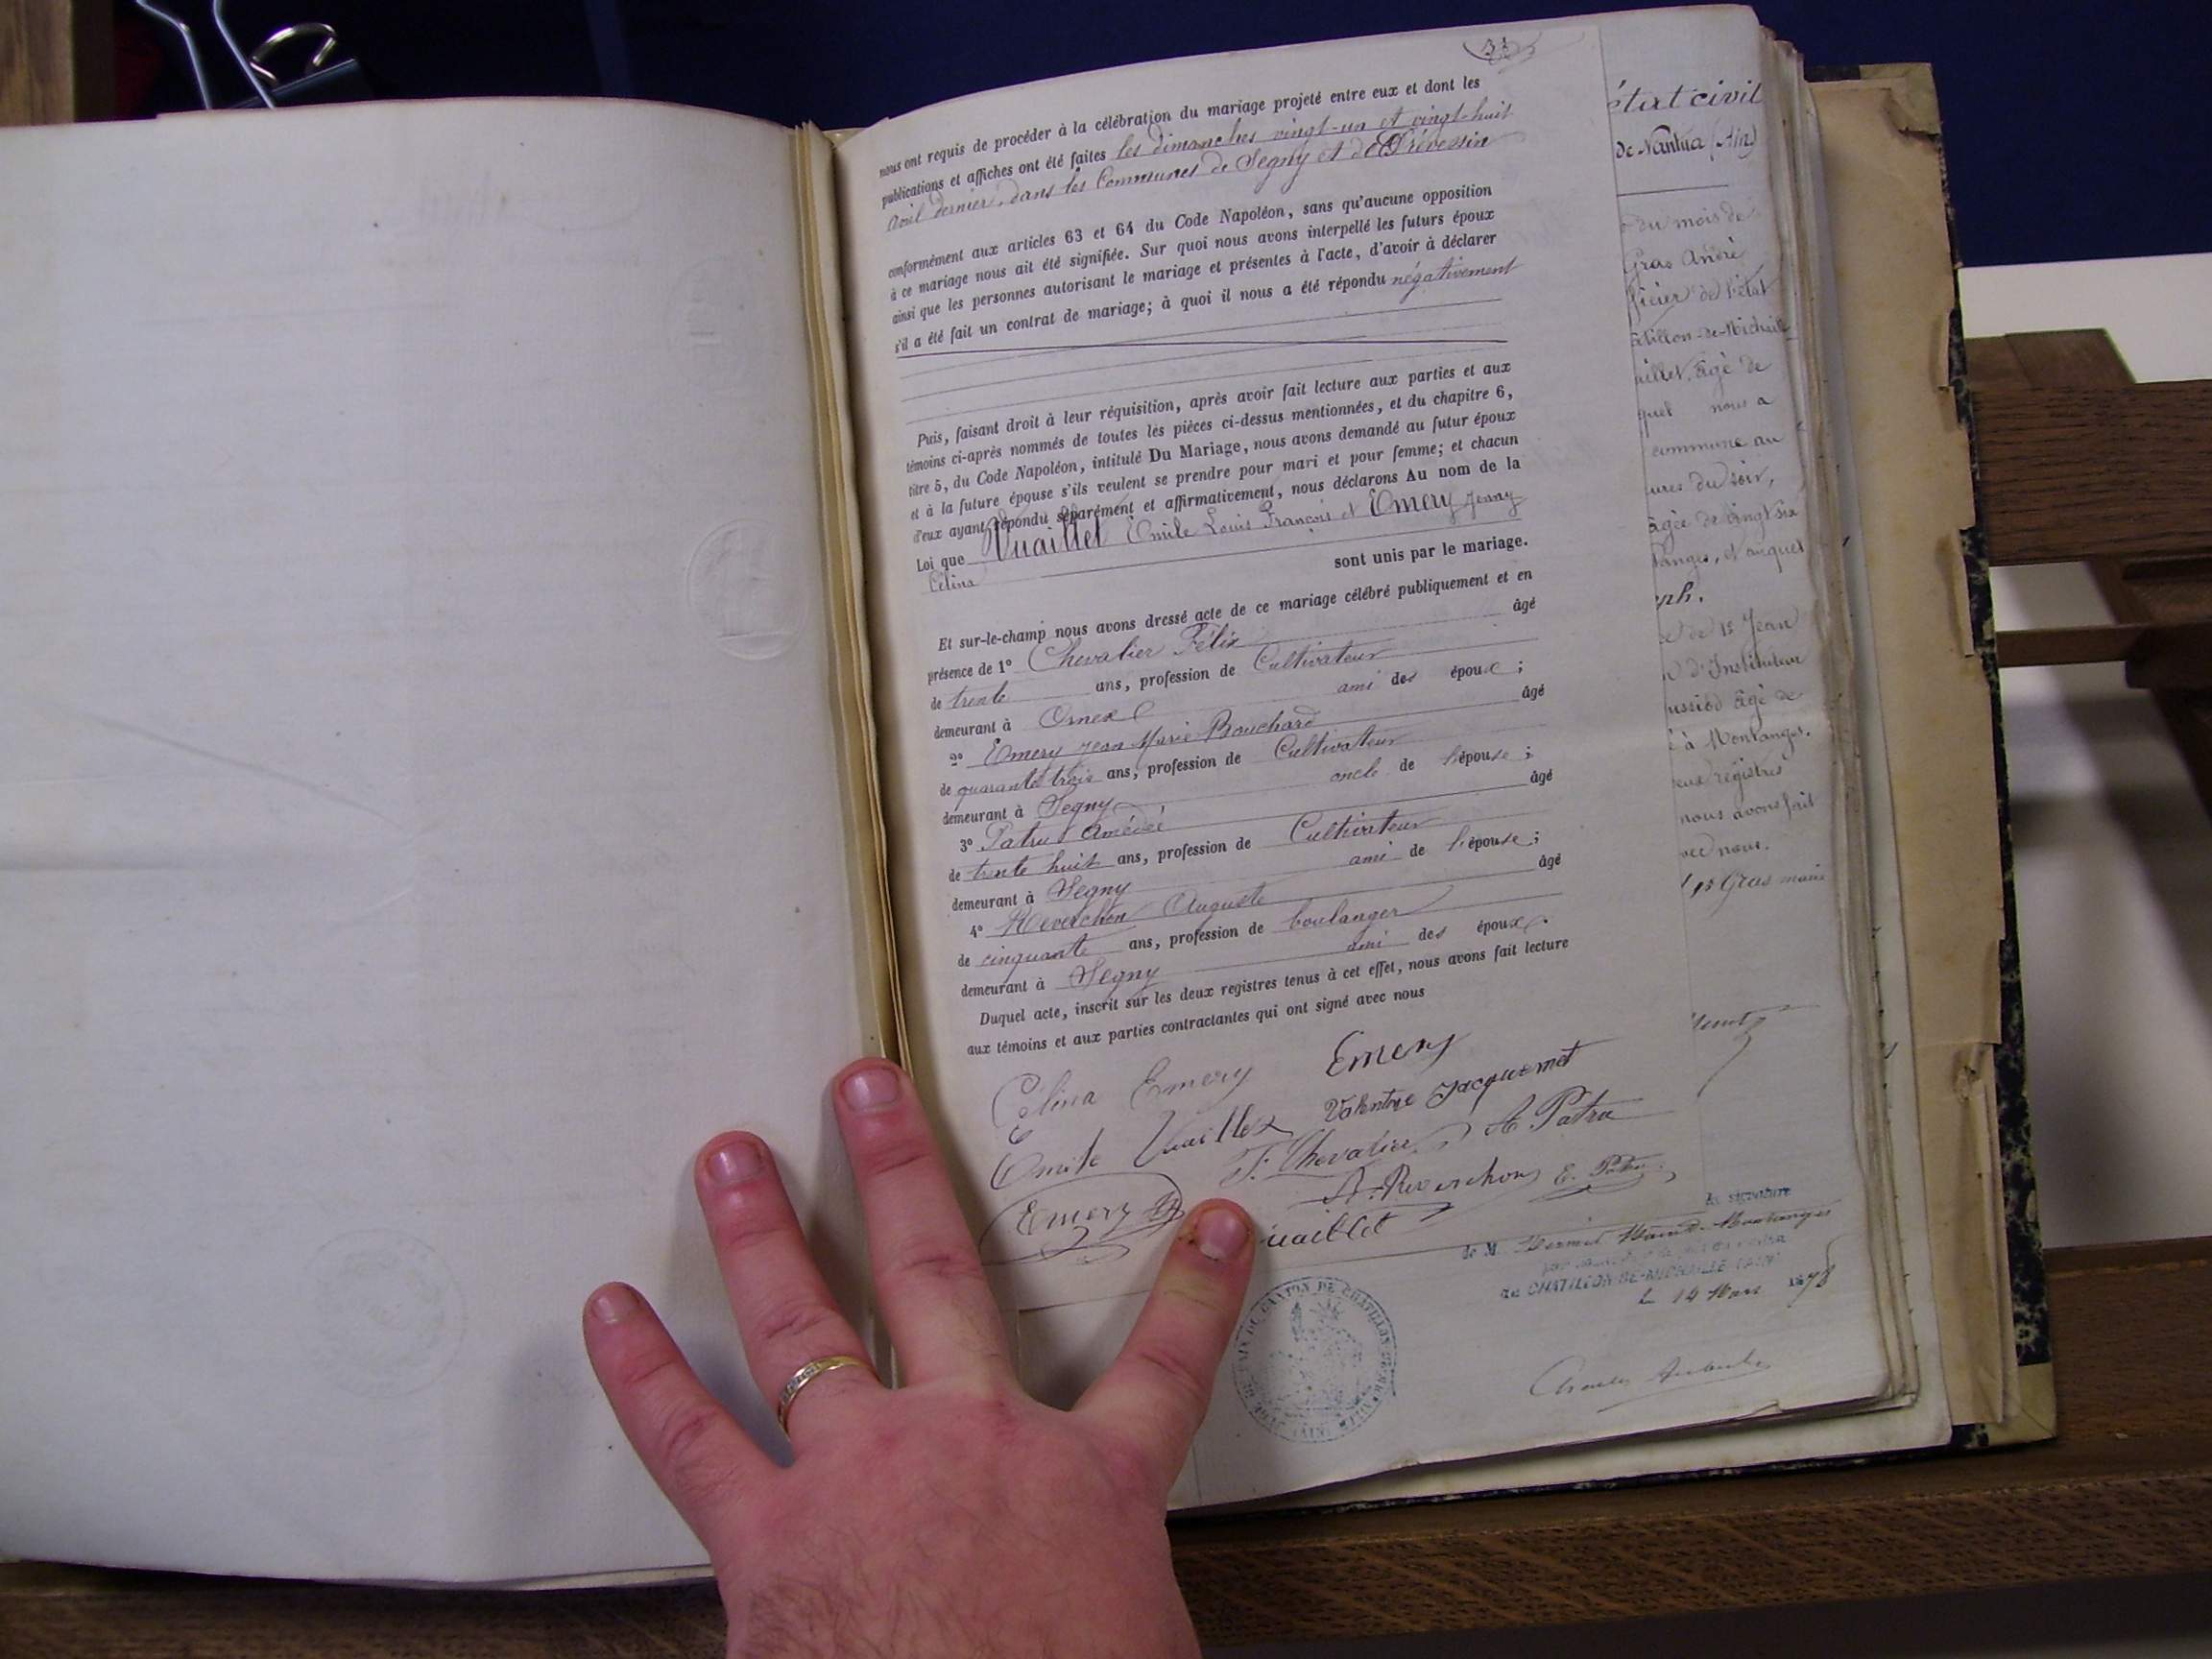 31
nous ont requis de procéder à la célébration du mariage projeté entre eux et dont les
publications et affiches ont été faites les dimanches vingt-un et vingt-huit
avril dernier, dans les Communes de Segny et de Prévessin
conformément aux articles 63 et 64 du Code Napoléon, sans qu'aucune opposition
à ce mariage nous ait été signifiée. Sur quoi nous avons interpellé les futurs époux
ainsi que les personnes autorisant le mariage et présentes à l'acte, d'avoir à déclarer
s'il a été fait un contrat de mariage; à quoi il nous a été répondu négativement
Puis, faisant droit à leur réquisition, après avoir fait lecture aux parties et aux
témoins ci-après nommés de toutes les pièces ci-dessus mentionnées, et du chapitre 6,
titre 5, du Code Napoléon, intitulé Du Mariage, nous avons demandé au futur époux
et à la future épouse s'ils veulent se prendre pour mari et pour femme; et chacun
d'eux ayant répondu séparément et affirmativement, nous déclarons Au nom de la
Loi que Vuaillet Emile Louis François et Emery Jenny
Célina sont unis par le mariage.
Et sur-le-champ nous avons dressé acte de ce mariage célébré publiquement et en
présence de 1° Chevalier Félix âgé
de trente ans, profession de Cultivateur
demeurant à Ornex ami des époux;
2° Emery Jean Marie Bouchard âgé
de quarante trois ans, profession de Cultivateur
demeurant à Segny oncle de l'épouse;
3° Patru Amédée âgé
de trente huit ans, profession de Cultivateur
demeurant à Segny ami de l'épouse;
4° Reverchon Auguste âgé
de cinquante ans, profession de boulanger
demeurant à Segny ami des époux.
Duquel acte, inscrit sur les deux registres tenus à cet effet, nous avons fait lecture
aux témoins et aux parties contractantes qui ont signé avec nous
Célina Emery Emery
Emile Vuaillet Valentine Jacquemet
F. Chevalier A. Patru
Emery A. Reverchon E. Patru
uaillet
état civil
de Nantua (Ain)
du mois de
Gras André
ficier de l'état
âtillon-de-Michaille
aillet, âgé de
quel nous a
commune au
ures du soir,
âgée de vingt six
tanges, et auquel
eph.
de 1° Jean
d'Instituteur
ussiod âgé de
à Montanges.
eux registres
nous avons fait
vec nous.
Gras maire
la signature
de M. Maire de Montanges
de CHATILLON-DE-MICHAILLE (AIN)
le 14 Mars 1878
DU CANTON DE CHATILLON DE MICHAILLE
(AIN)